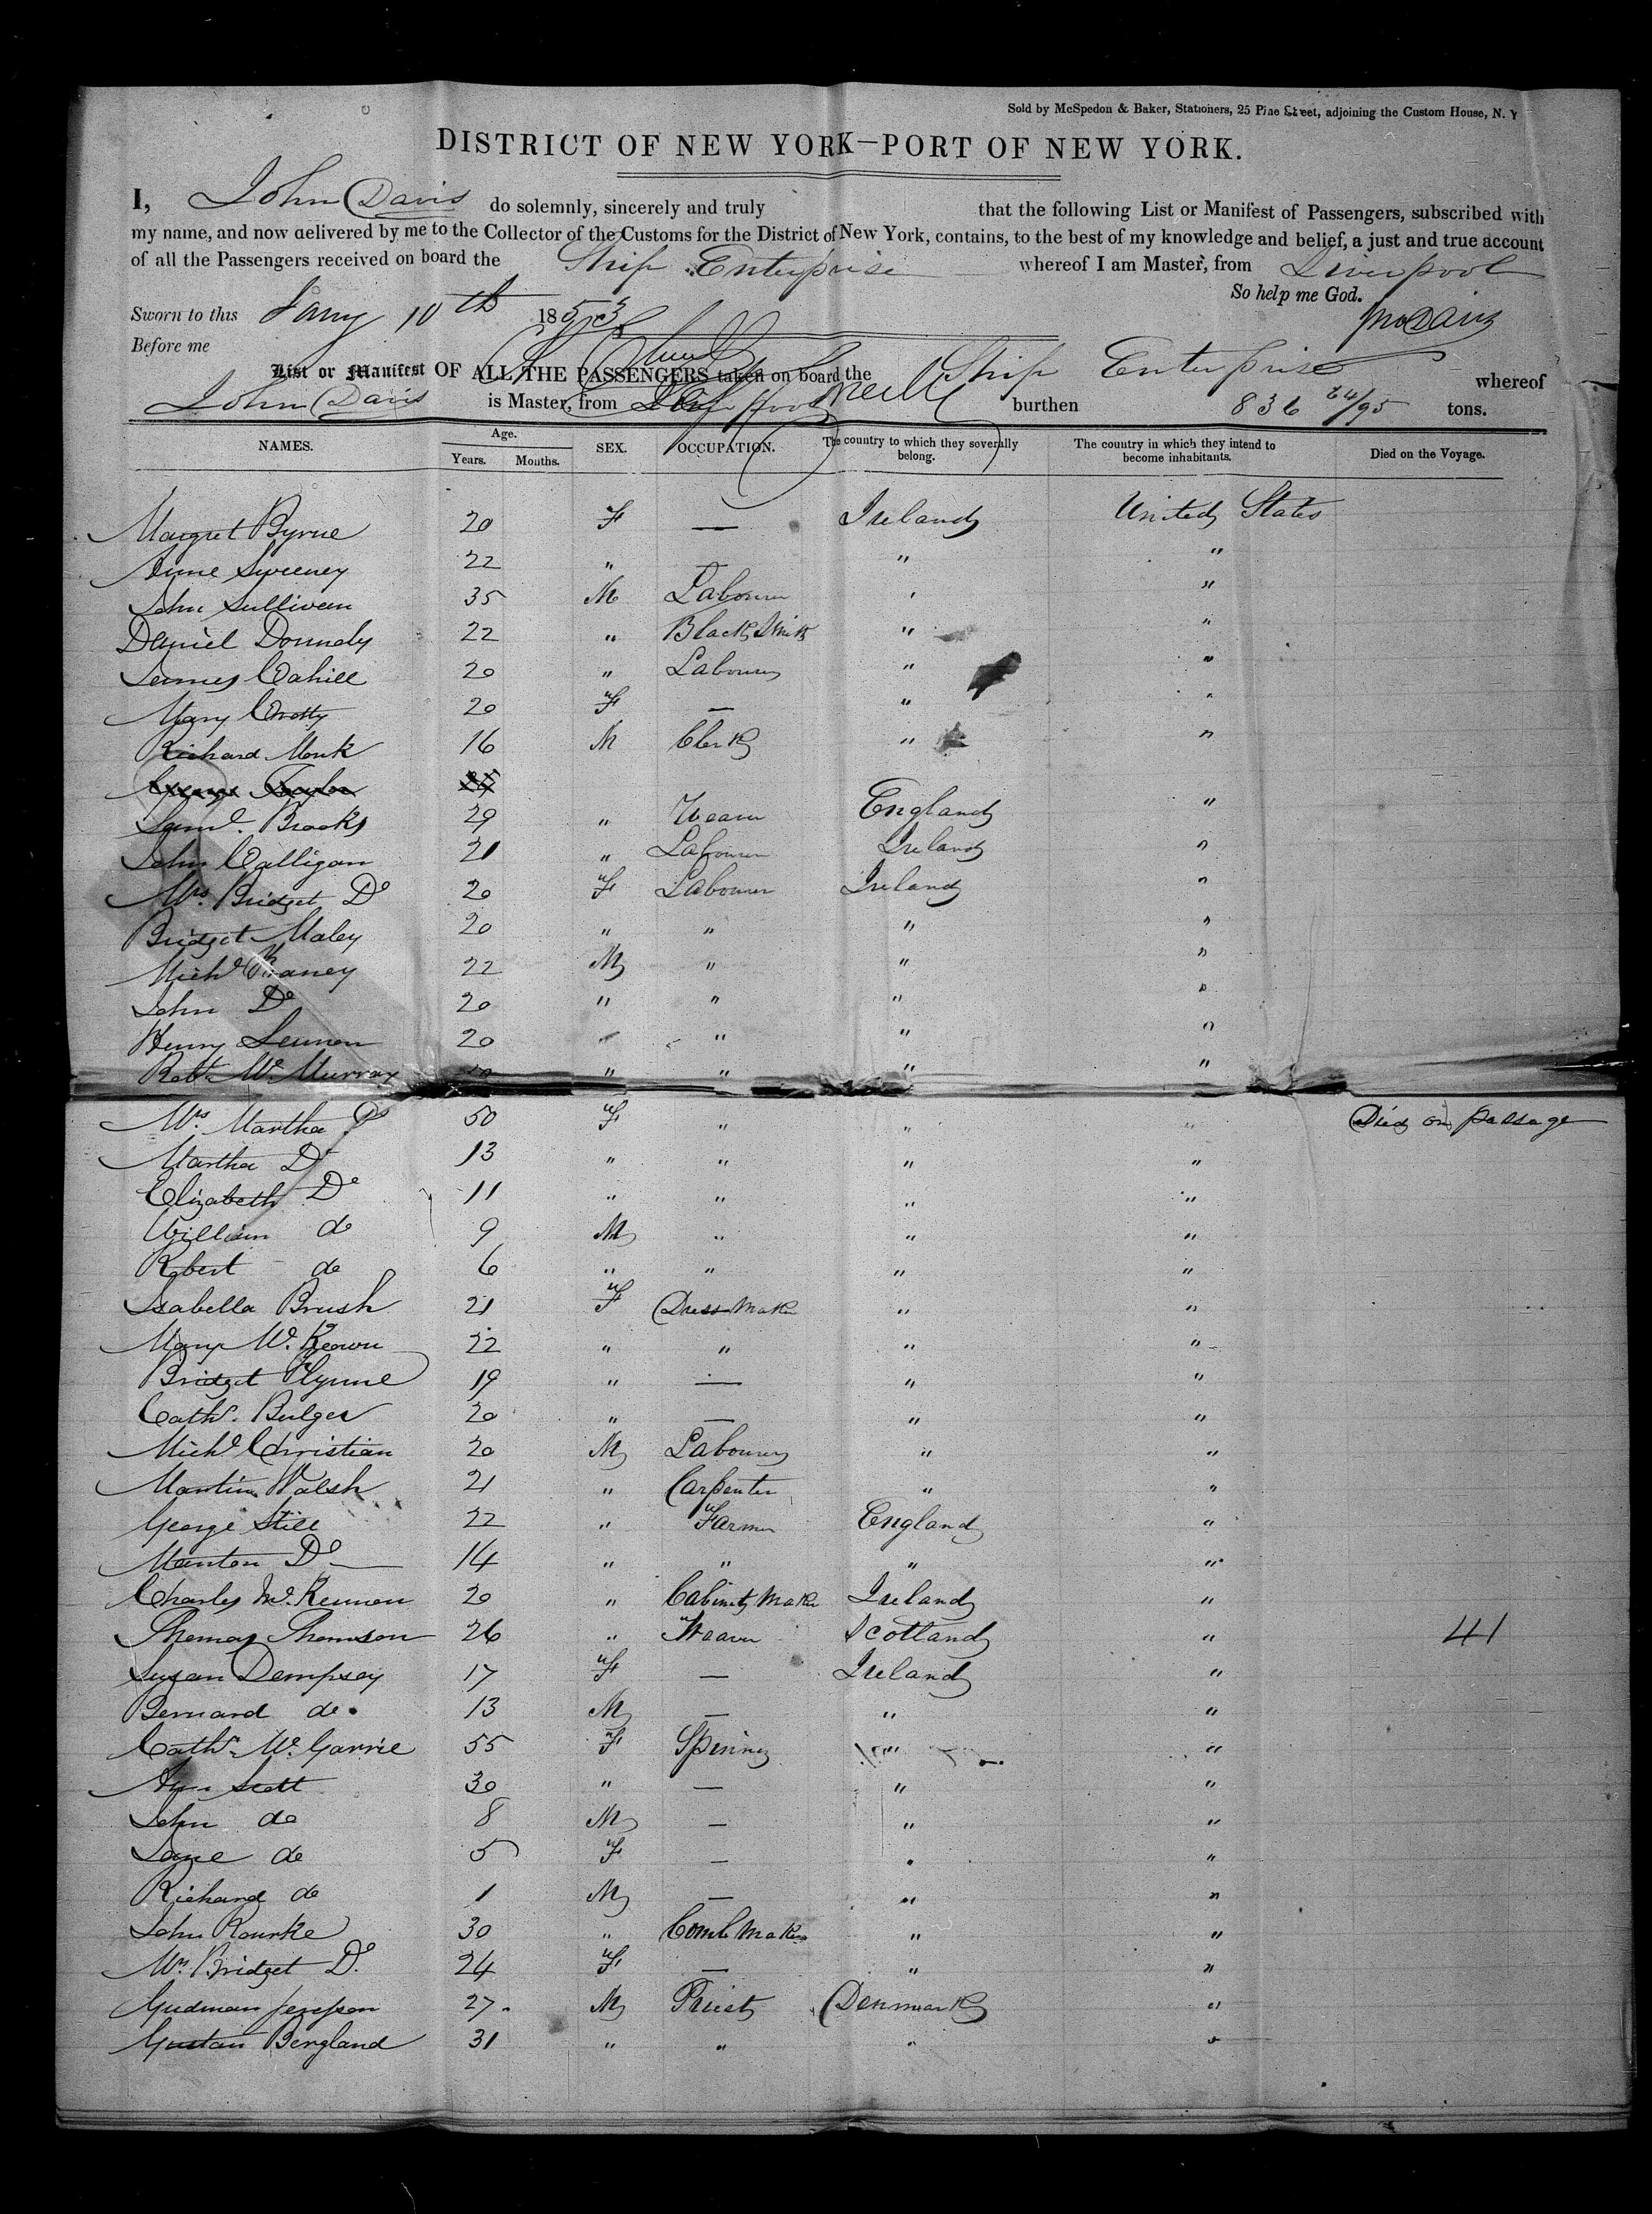 Sold by McSpedon & Baker, Stationers, 25 Pine Street, adjoining the Custom House, N. Y
DISTRICT OF NEW YORK—PORT OF NEW YORK.
I, John Davis do solemnly, sincerely and truly that the following List or Manifest of Passengers, subscribed with
my name, and now delivered by me to the Collector of the Customs for the District of New York, contains, to the best of my knowledge and belief, a just and true account
of all the Passengers received on board the Ship Enterprise whereof I am Master, from Liverpool
So help me God.
Sworn to this Jany 10th 1853 Jno Davis
Before me
List or Manifest OF ALL THE PASSENGERS taken on board the Ship Enterprise whereof
John Davis is Master, from Liverpool burthen 836 64/95 tons.
NAMES. Age. Years. Months. SEX. OCCUPATION. The country to which they severally belong. The country in which they intend to become inhabitants. Died on the Voyage.
Margret Byrne 20 F — Ireland United States
Anne Sweeney 22 " — " "
John Sullivan 35 M Labourer " "
Daniel Donnely 22 " Black Smith " "
James Cahill 20 " Labourer " "
Mary Crotty 20 F — " "
Richard Monk 16 M Clerk " "
George Taylor
Saml. Brooks 29 " Weaver England "
John Calligan 21 " Labourer Ireland "
Mrs. Bridget Do 20 F Labourer Ireland "
Bridget Maley 20 " " " "
Michl. 22 M " " "
John Do 20 " " " "
Henry Lennon 20 " " " "
Robt. McMurray " " " "
Mrs Martha Do 50 F " " " Died on passage
Martha Do 13 " " " "
Elizabeth Do 11 " " " "
William do 9 M " " "
Robert do 6 " " " "
Isabella Brush 21 F Dress Maker " "
Mary McKeown 22 " " " "
Bridget Flynne 19 " — " "
Cathe. Bulger 20 " — " "
Michl. Christian 20 M Labourer " "
Martin Walsh 21 " Carpenter " "
George Still 22 " Farmer England "
Manton Do 14 " " " "
Charles McKennon 20 " Cabinet Maker Ireland "
Thomas Thomson 26 " Weaver Scotland " 41
Susan Dempsey 17 F — Ireland "
Bernard do 13 M — " "
Cathe. McGarrie 55 F Spinner " "
Ann Scott 30 " — " "
John do 8 M — " "
Jane do 5 F — " "
Richard do 1 M — " "
John Rourke 30 " Comb Maker " "
Mrs Bridget Do. 24 F — " "
Gudman 27 M Priest Denmark "
Gustav Bergland 31 " " " "